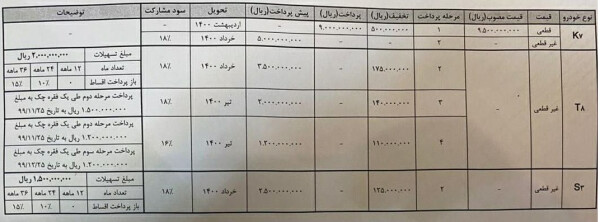 نوع خودرو | قیمت | قیمت مصوب (ریال) | مرحله پرداخت | تخفیف(ریال) | پرداخت(ریال) | پیش پرداخت(ریال) | تحویل | سود مشارکت | توضیحات
K۷ | قطعی | ۹.۵۰۰.۰۰۰.۰۰۰ | ۱ | ۵۰۰.۰۰۰.۰۰۰ | ۹.۰۰۰.۰۰۰.۰۰۰ | - | اردیبهشت ۱۴۰۰ | - | -
غیر قطعی | - | ۲ | - | - | ۵.۰۰۰.۰۰۰.۰۰۰ | خرداد ۱۴۰۰ | ۱۸%
T۸ | غیر قطعی | - | ۲ | ۱۷۵.۰۰۰.۰۰۰ | - | ۳.۵۰۰.۰۰۰.۰۰۰ | خرداد ۱۴۰۰ | ۱۸%
مبلغ تسهیلات ۲.۰۰۰.۰۰۰.۰۰۰ ریال
تعداد ماه | ۱۲ ماهه | ۲۴ ماهه | ۳۶ ماهه
باز پرداخت اقساط | ۰ | ۱۰% | ۱۵%
۳ | ۱۴۰.۰۰۰.۰۰۰ | - | ۲.۰۰۰.۰۰۰.۰۰۰ | تیر ۱۴۰۰ | ۱۸%
پرداخت مرحله دوم طی یک فقره چک به مبلغ
۱.۵۰۰.۰۰۰.۰۰۰ ریال به تاریخ ۹۹/۱۱/۲۵
۴ | ۱۱۰.۰۰۰.۰۰۰ | - | ۱.۲۰۰.۰۰۰.۰۰۰ | تیر ۱۴۰۰ | ۱۶%
پرداخت مرحله دوم طی یک فقره چک به مبلغ
۱.۲۰۰.۰۰۰.۰۰۰ ریال به تاریخ ۹۹/۱۱/۲۵
پرداخت مرحله سوم طی یک فقره چک به مبلغ
۱.۲۰۰.۰۰۰.۰۰۰ ریال به تاریخ ۹۹/۱۲/۲۵
S۳ | غیر قطعی | - | ۲ | ۱۲۵.۰۰۰.۰۰۰ | - | ۲.۵۰۰.۰۰۰.۰۰۰ | خرداد ۱۴۰۰ | ۱۸%
مبلغ تسهیلات ۱.۵۰۰.۰۰۰.۰۰۰ ریال
تعداد ماه | ۱۲ ماهه | ۲۴ ماهه | ۳۶ ماهه
باز پرداخت اقساط | ۰ | ۱۰% | ۱۵%